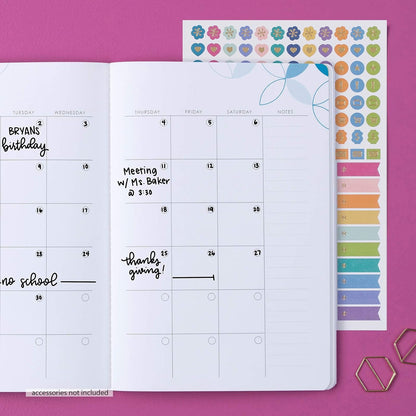 TUESDAY WEDNESDAY THURSDAY FRIDAY SATURDAY NOTES
2 3 4 5 6
BRYANS
birthday
9 10 11 12 13
Meeting
w/ Ms. Baker
@ 3:30
16 17 18 19 20
23 24 25 26 27
thanks
giving!
no school
30
accessories not included